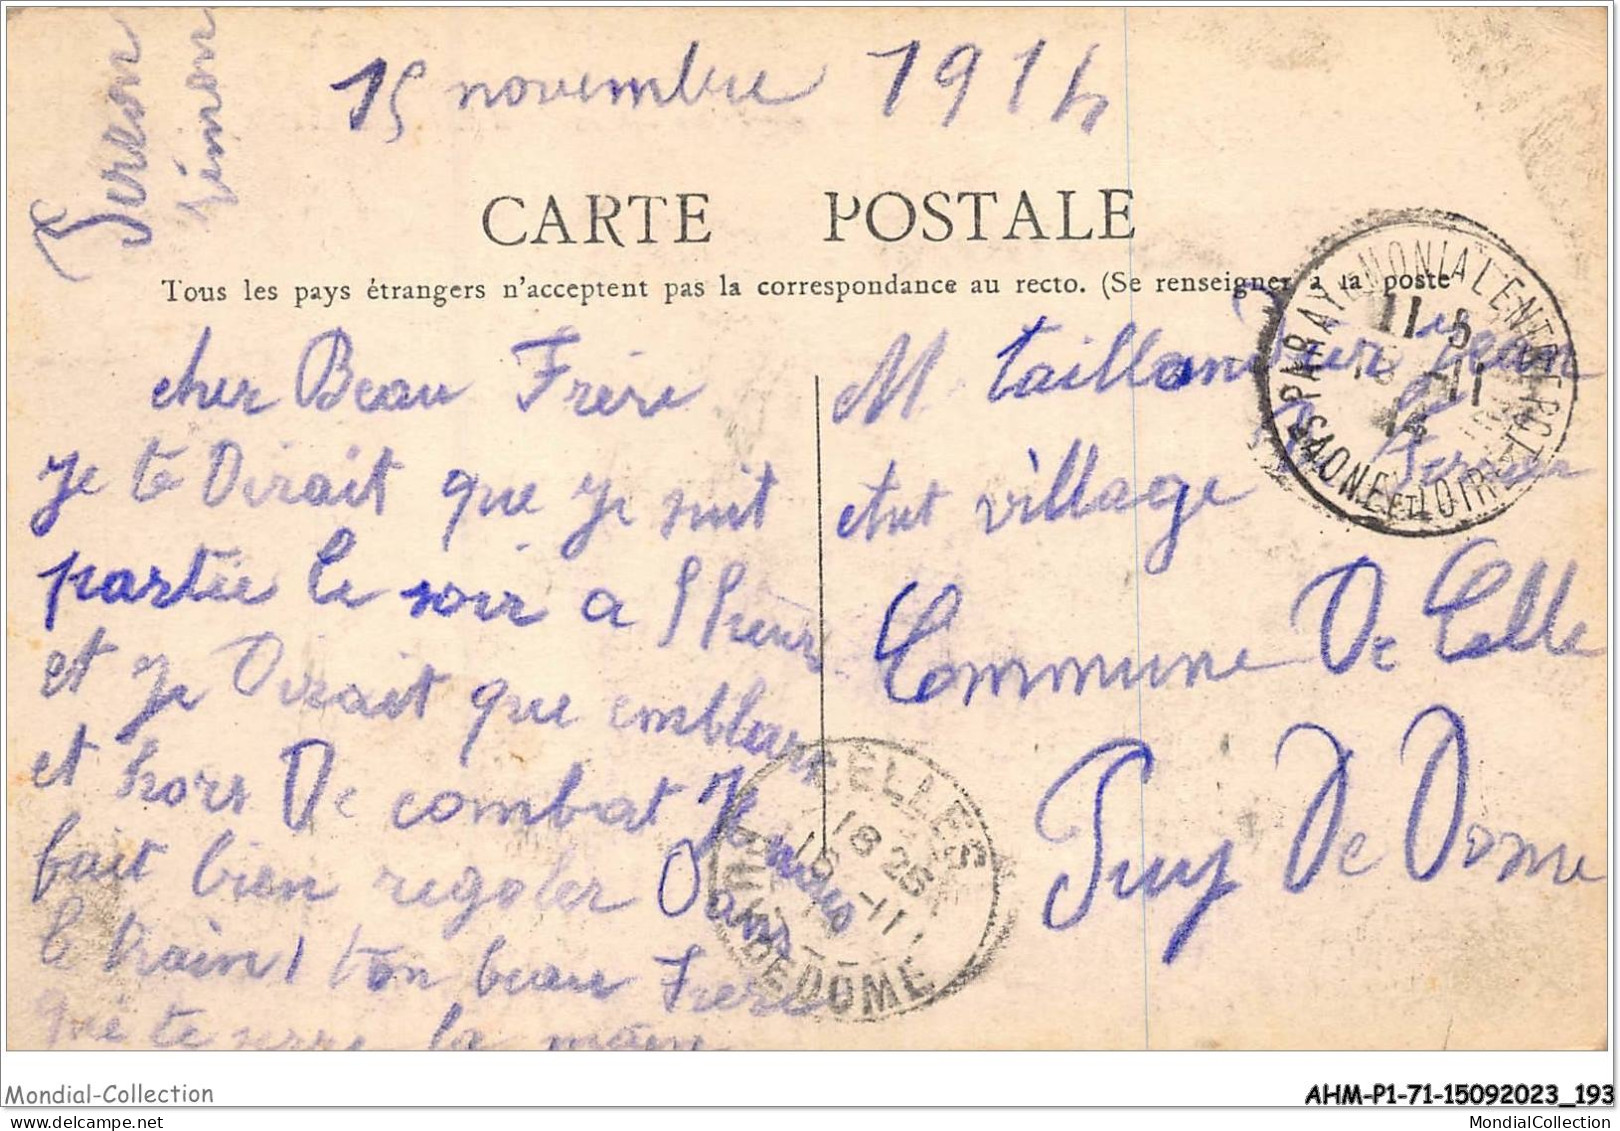 15 novembre 1914
CARTE POSTALE
Tous les pays étrangers n'acceptent pas la correspondance au recto. (Se renseigner à la poste
cher Beau Frère
Je te Dirait que je suit
partie le soir a
et je Dirait que
et hors De combat Je
fait bien regoler Dans
le train, ton beau Frere
qui te serre la main
M. taillandier Jean
village
Commune De Celle
Puy De Dome
PARAY-LE-MONIAL ENTREPOT
SAONE-ET-LOIRE
11-5
18 -11
14
CELLES
18 25
-11
PUY-DE-DOME
Mondial-Collection
AHM-P1-71-15092023_193
MondialCollection